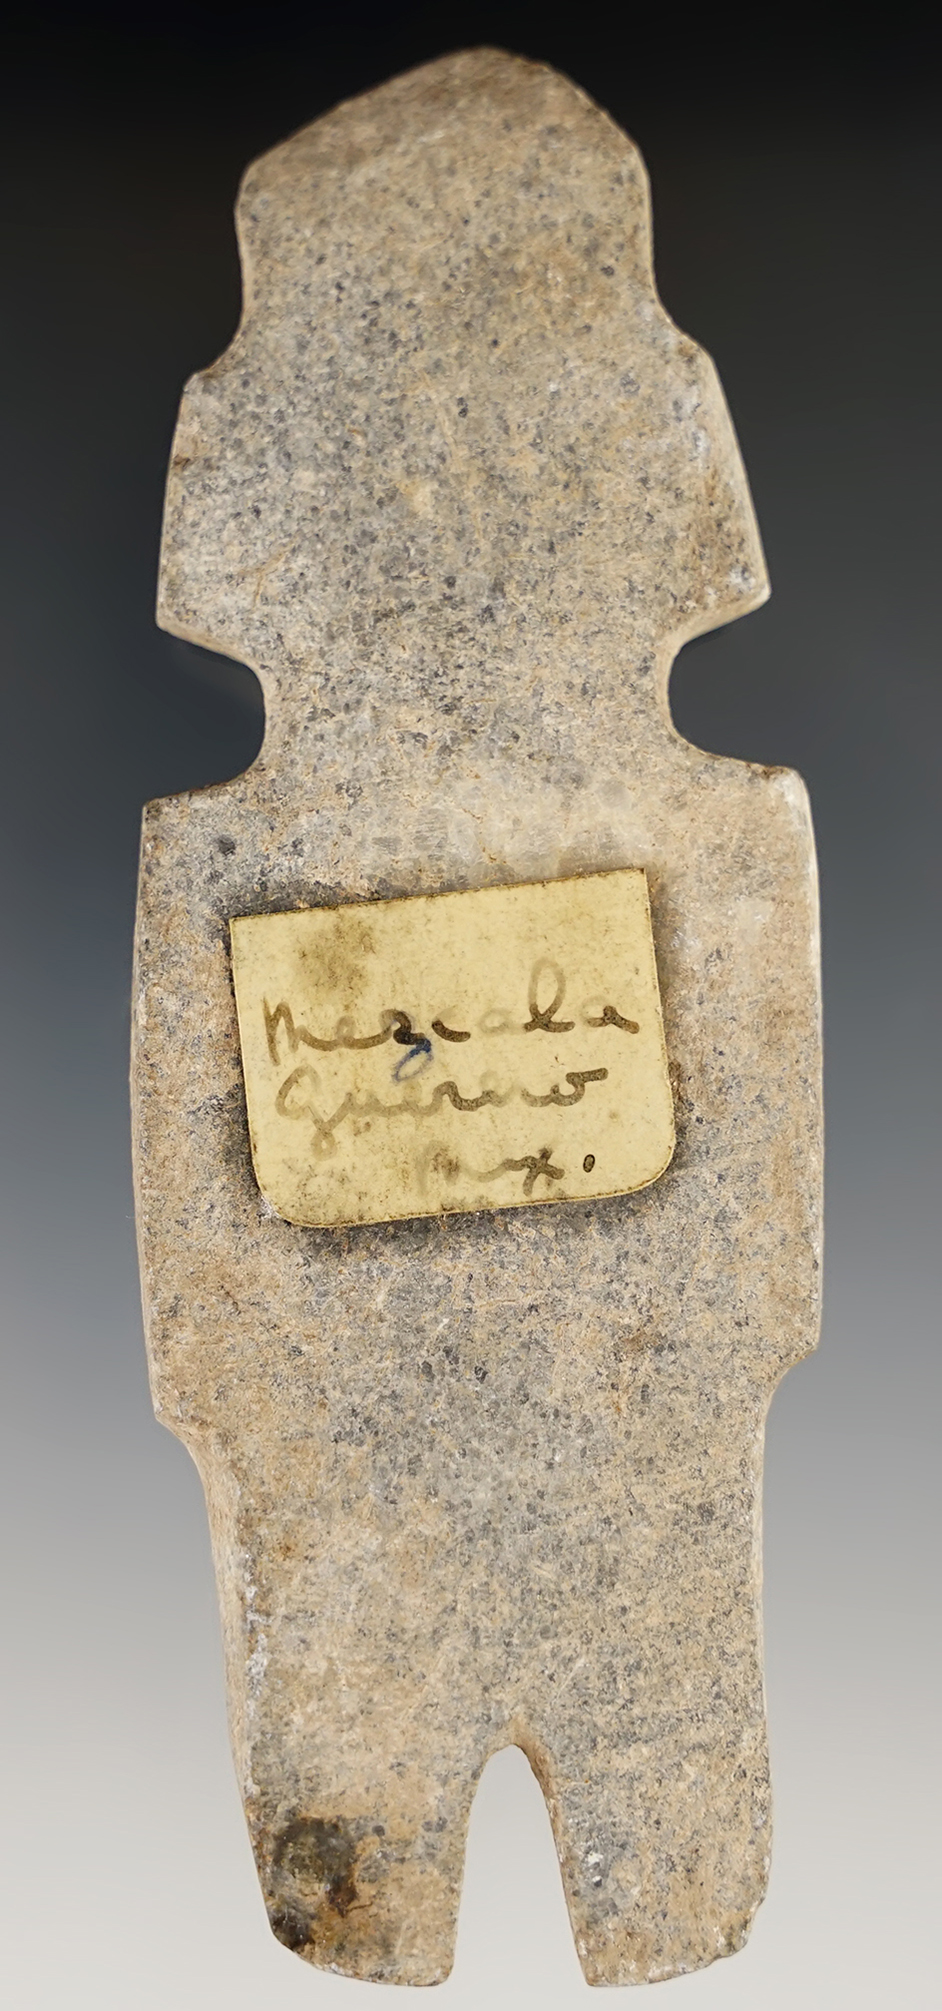 Mezcala
Guerrero
Mex.